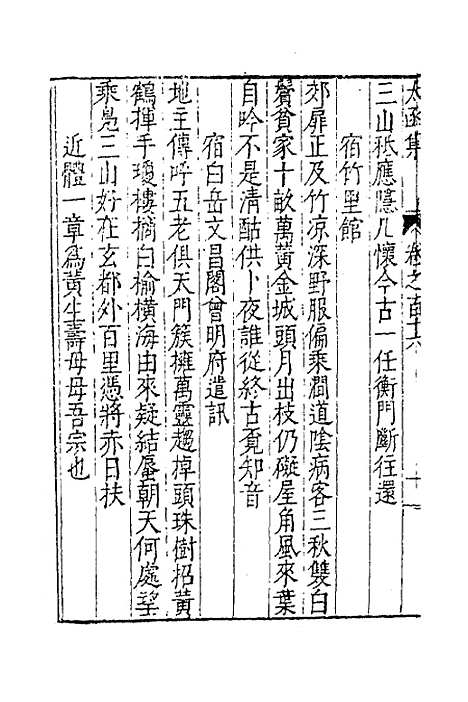 太函集
卷之百十六
三山秪應隱几懷今古一任衡門斷往還
宿竹里館
郊扉正及竹凉深野服偏乘澗道陰病客三秋雙白
鬢貧家十畝萬黃金城頭月出枝仍礙屋角風來葉
自吟不是清酤供卜夜誰從終古覓知音
宿白岳文昌閣曾明府遣訊
地主傳呼五老俱天門簇擁萬靈趨掉頭珠樹招黃
鶴揮手瓊樓摘白榆橫海由來疑結蜃朝天何處望
乘鳧三山好在玄都外百里憑將赤日扶
近體一章爲黃生壽母母吾宗也